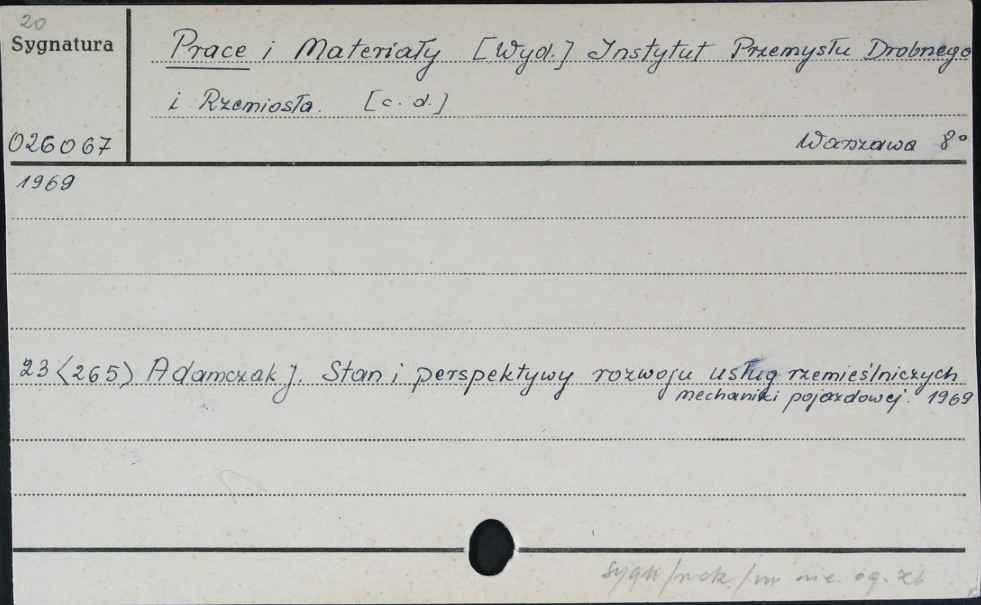 20
Sygnatura
Prace i Materiały [Wyd.] Instytut Przemysłu Drobnego
i Rzemiosła. [c. d.]
026067
Warszawa 8°
1969
23 <265> Adamczak J. Stan i perspektywy rozwoju usług rzemieślniczych
mechaniki pojazdowej. 1969
sygn/rok/nr